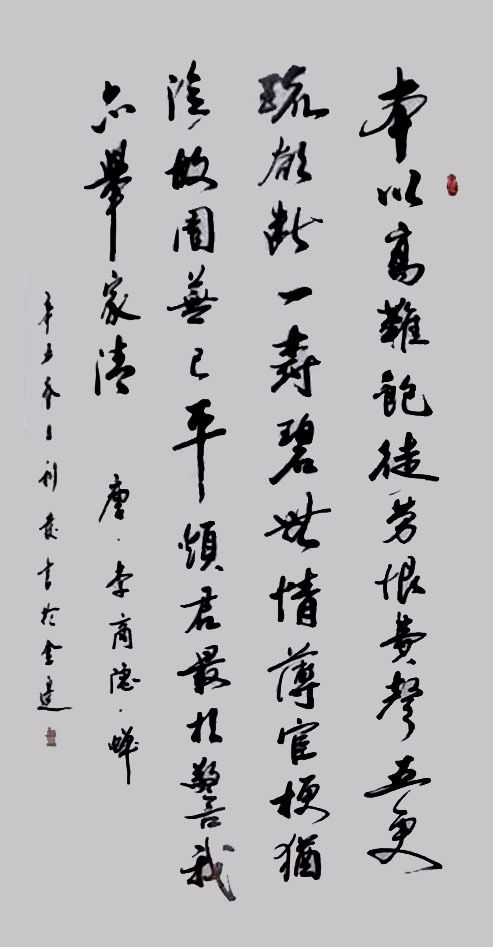 本以高難飽徒勞恨費聲五更
疏欲斷一樹碧無情薄宦梗猶
泛故園蕪已平煩君最相警我
亦舉家清 唐·李商隱·蟬
辛丑 書於金邊